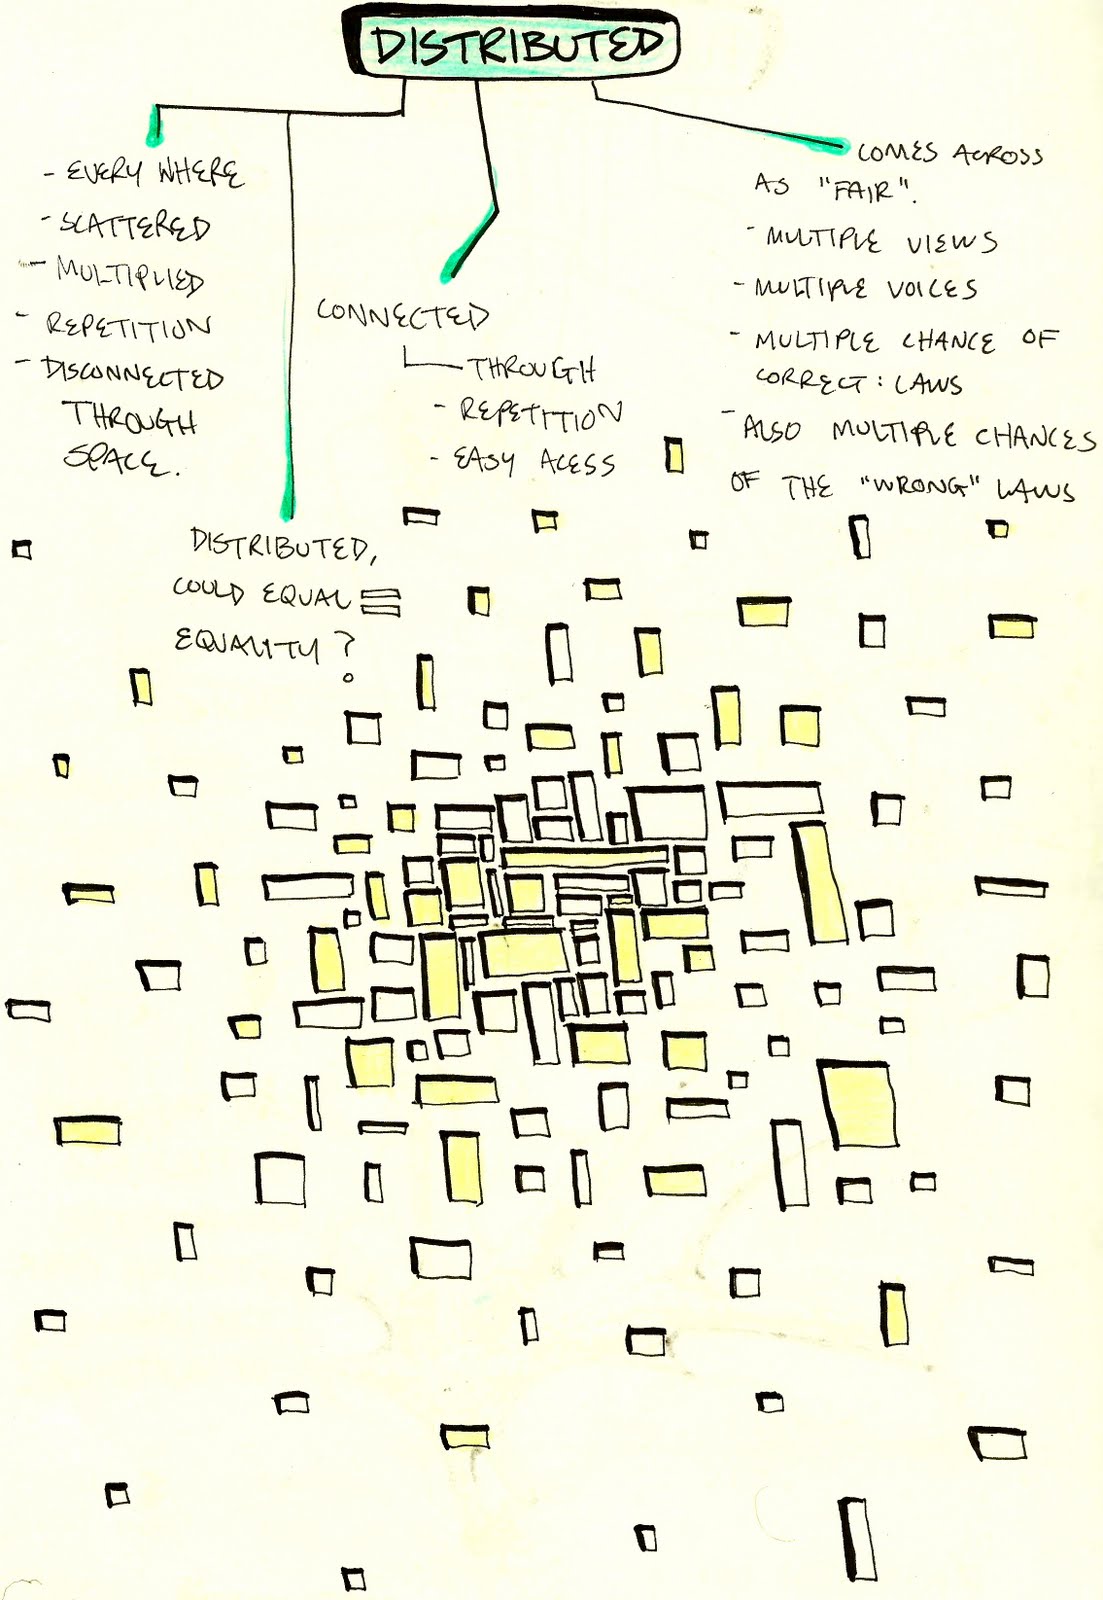 DISTRIBUTED
- EVERY WHERE
- SCATTERED
- MULTIPLIED
- REPETITION
- DISCONNECTED
THROUGH
SPACE.
DISTRIBUTED,
COULD EQUAL =
EQUALITY?
CONNECTED
THROUGH
- REPETITION
- EASY ACESS
COMES ACROSS
AS "FAIR".
- MULTIPLE VIEWS
- MULTIPLE VOICES
- MULTIPLE CHANCE OF
CORRECT: LAWS
- ALSO MULTIPLE CHANCES
OF THE "WRONG" LAWS